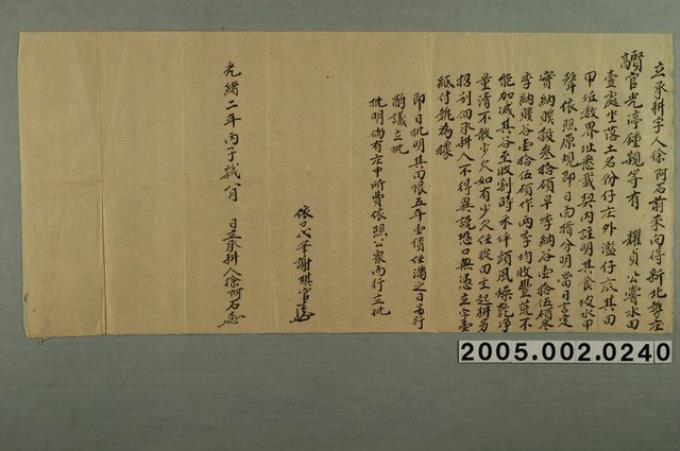 立承耕字人徐阿石前來向得新北勢庄
賢官光渟鍾親等有 耀貞公嘗水田
壹處坐落土名份仔庄外濫仔底其田
甲坵數界址悉載契內註明其食坡水甲
聲依照原規即日向指分明當日言定
實納賺穀叁拾碩早季納谷壹拾伍碩冬
季納賺谷壹拾伍碩作兩季均收豐荒不
能加減其谷至收割時禾坪頭風燥乾淨
量清不敢少欠如有少欠任從田主起耕另
招別佃承耕人不得異說恐口無憑立字壹
紙付執為據
即日批明其田限五年壹債任滿之日另行
酌議立批
批明倘有庄中所費依照公眾而行立批
依口代筆謝琪官
光緒二年丙子歲八月 日立承耕人徐阿石
2005.002.0240